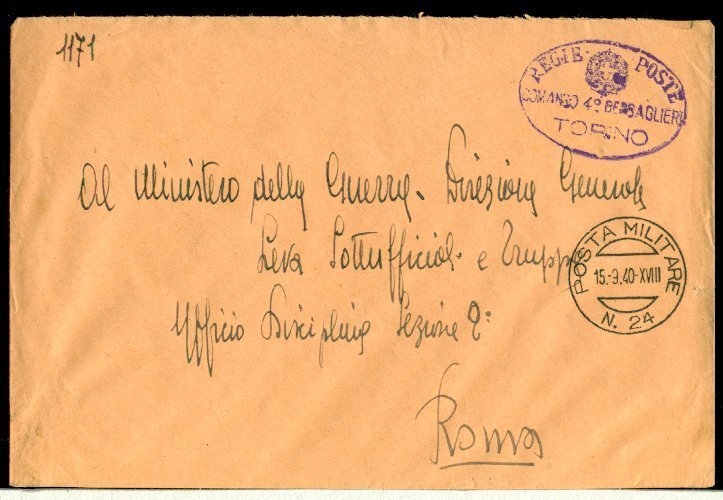 1171
REGIE POSTE
COMANDO 4º BERSAGLIERI
TORINO
Al Ministero della Guerra - Direzione Generale
Leva Sottufficiali e Truppa
POSTA MILITARE
15.-9.40-XVIII
N. 24
Ufficio Disciplina Sezione 2ª
Roma